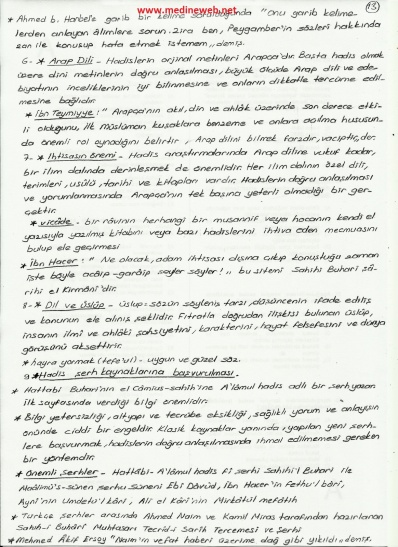 www.medineweb.net
13
* Ahmed b. Hanbel'e garib bir kelime sorulduğunda "Onu garib kelime-
lerden anlayan âlimlere sorun. Zira ben, Peygamber'in sözleri hakkında
zan ile konuşup hata etmek istemem,, demiş.
6- * Arap Dili - Hadislerin orjinal metinleri Arapça'dır. Başta hadis olmak
üzere dini metinlerin doğru anlaşılması, büyük ölçüde Arap dili ve ede-
biyatının inceliklerinin iyi bilinmesine ve onların dikkatle tercüme edil-
mesine bağlıdır
* İbn Teymiyye: " Arapça'nın akıl, din ve ahlâk üzerinde son derece etki-
li olduğunu, ilk müslüman kuşaklara benzeme ve onlara açılma hususun-
da önemli rol oynadığını belirtir, Arap dilini bilmek farzdır, vaciptir, der.
7- * İhtisasın Önemi - Hadis araştırmalarında Arap diline vukuf kadar,
bir ilim dalında derinleşmek de önemlidir. Her ilim dalının özel dili,
terimleri, usûlü, tarihi ve kitapları vardır. Hadislerin doğru anlaşılması
ve yorumlanmasında Arapça'nın tek başına yeterli olmadığı bir ger-
çektir.
* vicâde - bir râvinin herhangi bir musannif veya hocanın kendi el
yazısıyla yazılmış kitabını veya bazı hadislerini ihtiva eden mecmuasını
bulup ele geçirmesi
* İbn Hacer: " Ne olacak, adam ihtisası dışına çıkıp konuştuğu zaman
işte böyle acâip-garâip şeyler söyler! ,, bu sitemi Sahihi Buhari şâ-
rihi el Kirmânî'dir.
8- * Dil ve Üslûp - Üslup= sözün söyleniş tarzı, düşüncenin ifade ediliş
ve konunun ele alınış şeklidir. Fıtratla doğrudan ilişkisi bulunan üslûp,
insanın ilmî ve ahlâkî şahsiyetini, karakterini, hayat felsefesini ve dünya
görüşünü aksettirir.
* hayra yormak (tefe'ül) - uygun ve güzel söz.
9 * Hadis şerh kaynaklarına başvurulması.
* Hattabi Buhari'nin el Câmius-sahih'ine A'lâmul hadis adlı bir şerh yazan
ilk sayfasında verdiği bilgi önemlidir.
* Bilgi yetersizliği, altyapı ve tecrübe eksikliği, sağlıklı yorum ve anlayışın
önünde ciddi bir engeldir. Klasik kaynaklar yanında, yapılan yeni şerh-
lere başvurmak, hadislerin doğru anlaşılmasında ihmal edilmemesi gereken
bir yöntemdir.
* Önemli şerhler - Hattâbi- A'lâmul hadis fî şerhi Sahihi'l Buhari ile
Maâlimü's-sünen şerhu süneni Ebi Dâvûd, İbn Hacer'in Fethu'l bâri,
Aynî'nin Umdetü'l kâri, Ali el kâri'nin Mirkâtül mefâtih
* Türkçe şerhler arasında Ahmed Naim ve Kamil Miras tarafından hazırlanan
Sahih-i Buhârî Muhtasarı Tecrid-i Sarih Tercemesi ve Şerhi
* Mehmed Âkif Ersoy "Naim'in vefat haberi üzerime dağ gibi yıkıldı,, demiş.